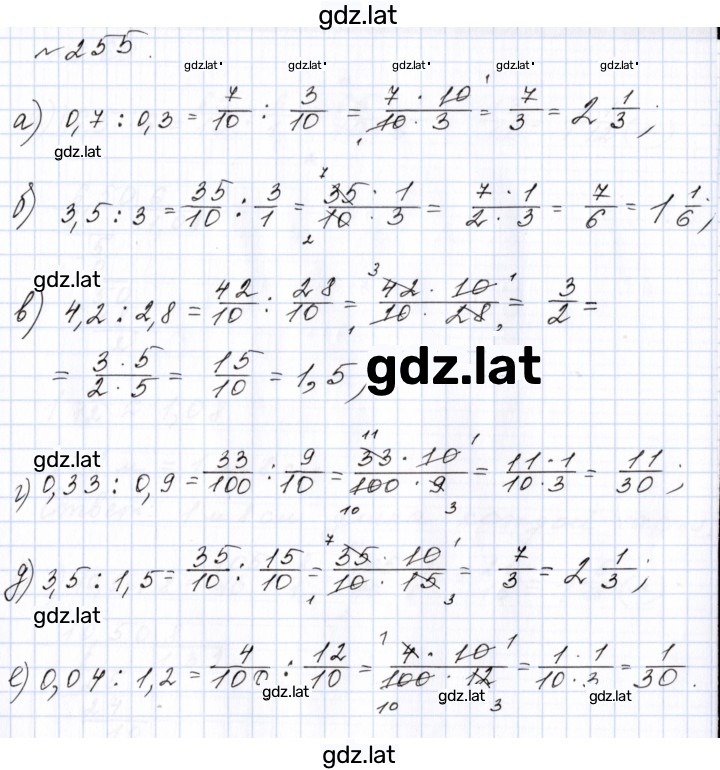 gdz.lat
№255.
gdz.lat gdz.lat gdz.lat gdz.lat gdz.lat
а) 0,7 : 0,3 = 7/10 : 3/10 = 7 · 10/10 · 3 = 7/3 = 2 1/3;
gdz.lat
б) 3,5 : 3 = 35/10 : 3/1 = 35 · 1/10 · 3 = 7 · 1/2 · 3 = 7/6 = 1 1/6;
gdz.lat
в) 4,2 : 2,8 = 42/10 : 28/10 = 42 · 10/10 · 28 = 3/2 =
= 3 · 5/2 · 5 = 15/10 = 1,5;
gdz.lat
gdz.lat
г) 0,33 : 0,9 = 33/100 : 9/10 = 33 · 10/100 · 9 = 11 · 1/10 · 3 = 11/30;
д) 3,5 : 1,5 = 35/10 : 15/10 = 35 · 10/10 · 15 = 7/3 = 2 1/3;
gdz.lat
е) 0,04 : 1,2 = 4/100 : 12/10 = 4 · 10/100 · 12 = 1 · 1/10 · 3 = 1/30.
gdz.lat gdz.lat gdz.lat
gdz.lat